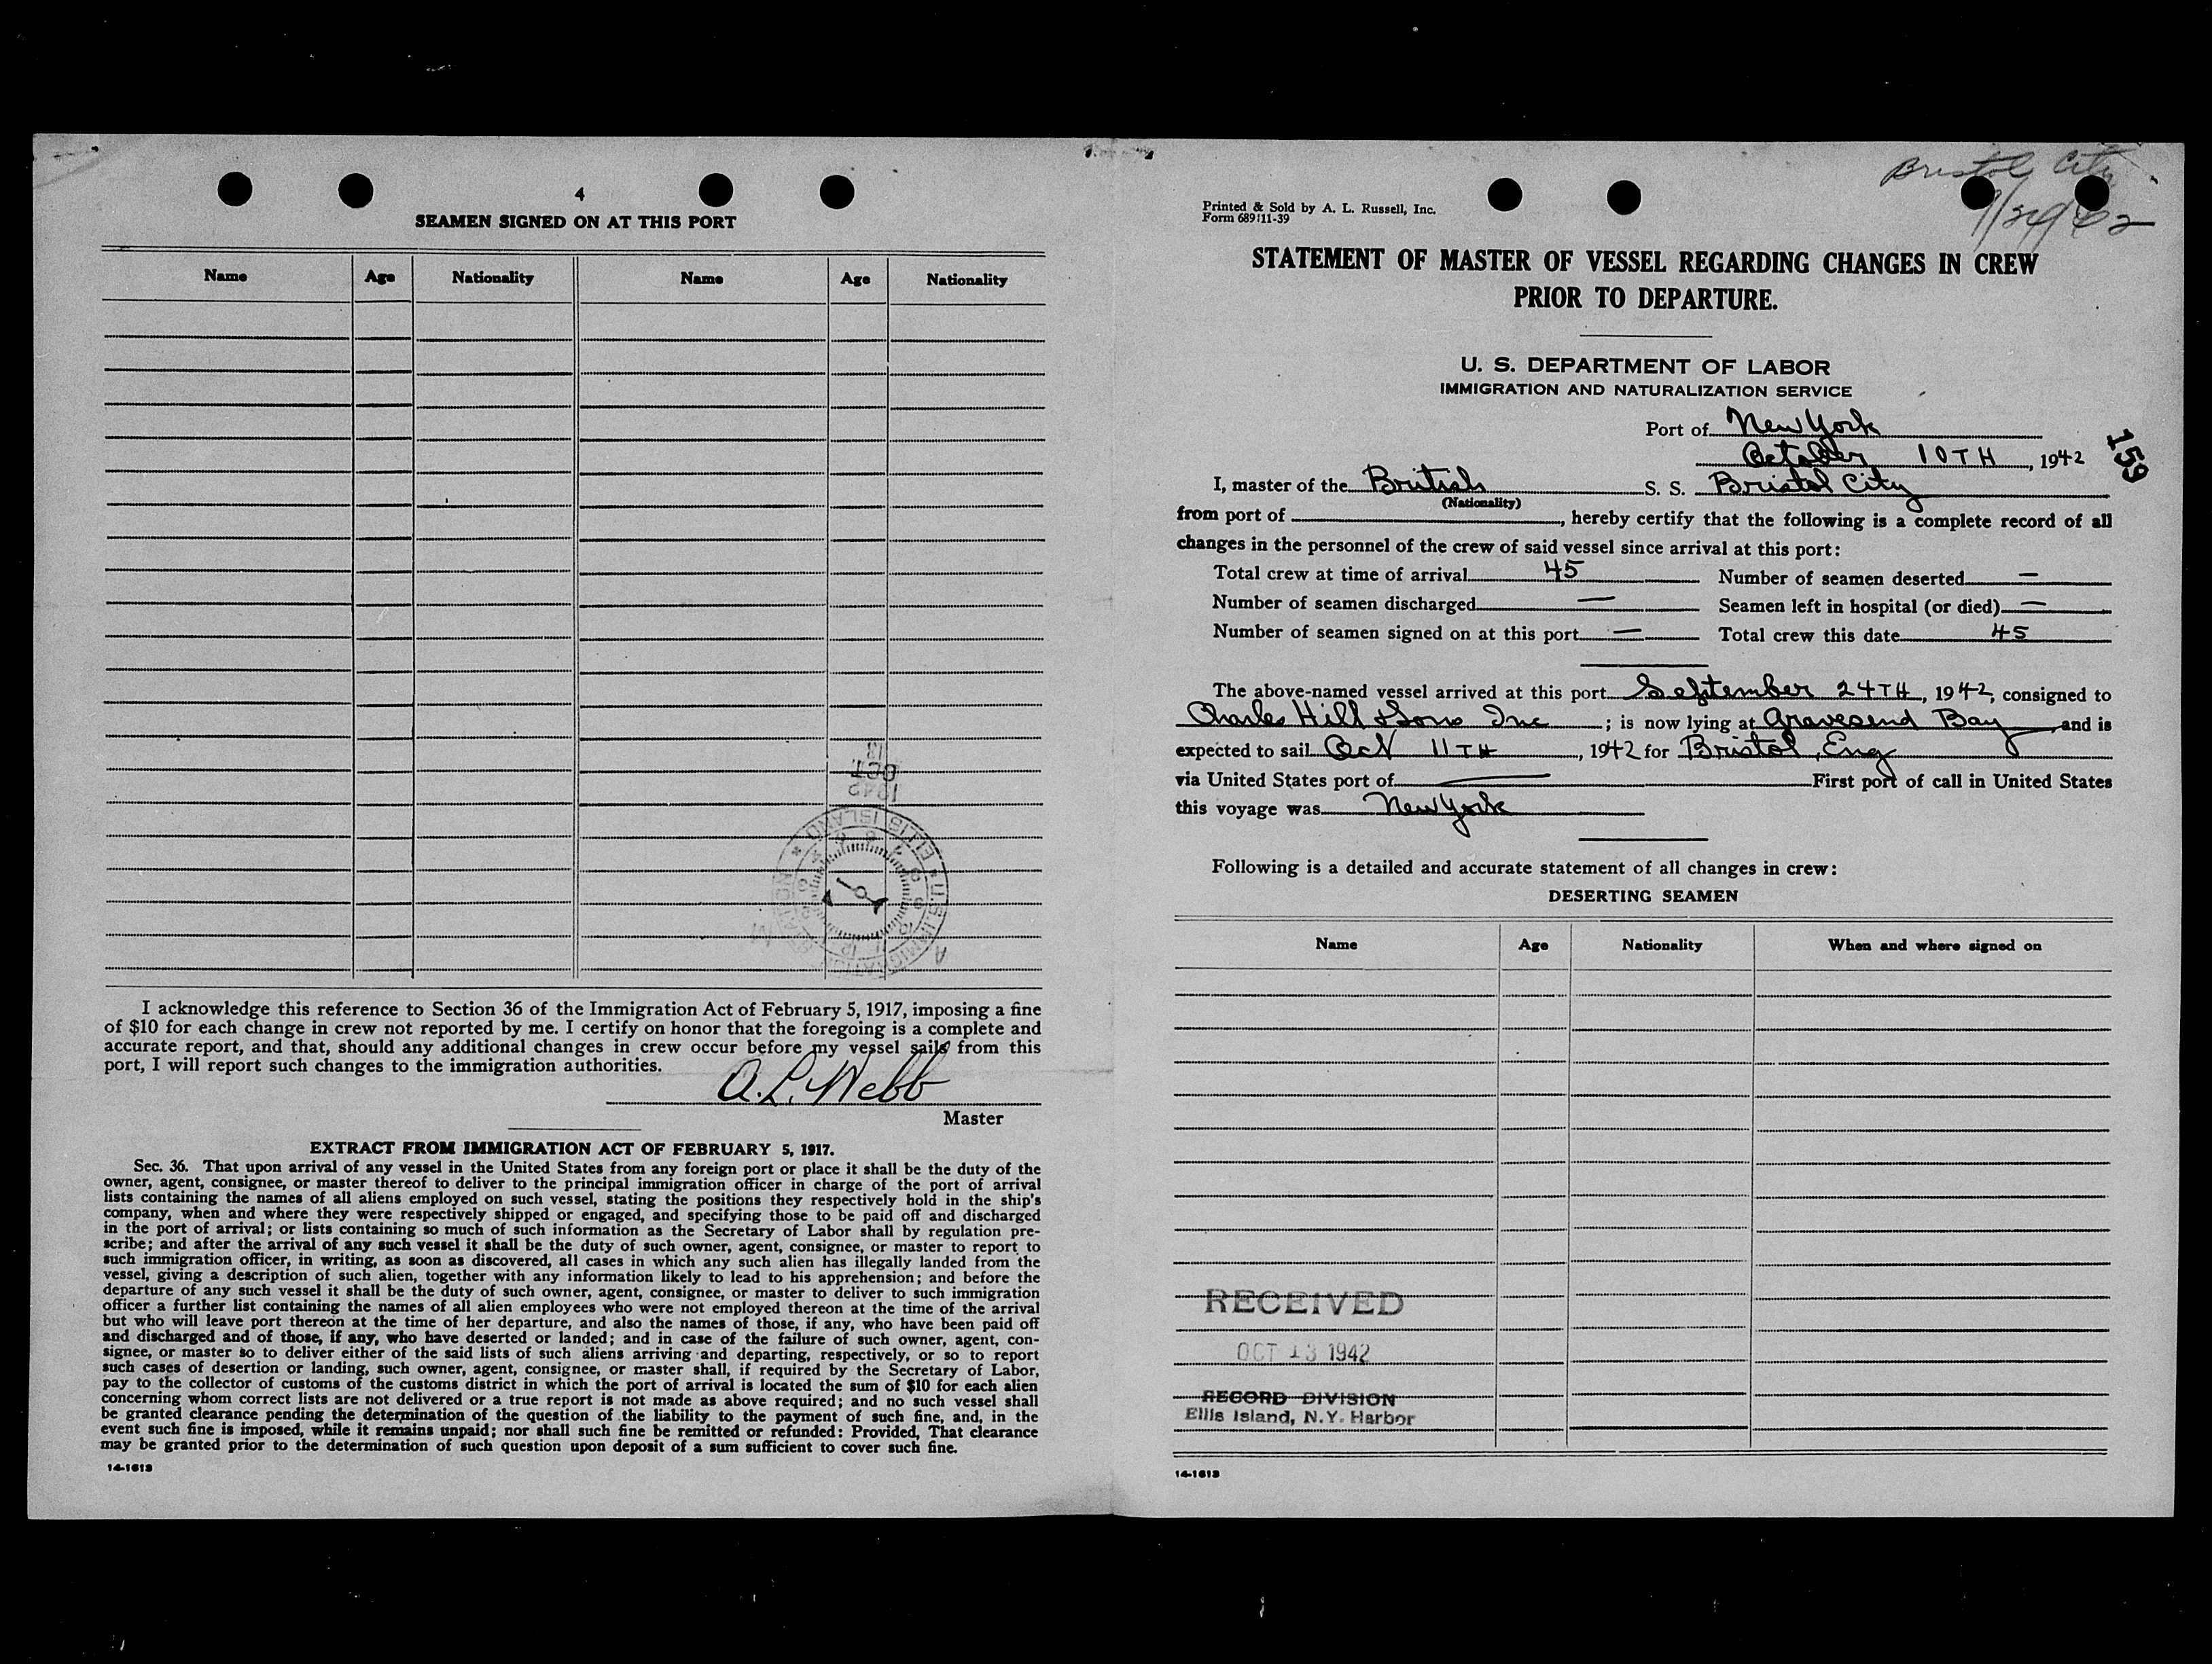 4
SEAMEN SIGNED ON AT THIS PORT
Name Age Nationality Name Age Nationality
13
OCT
1942
U.S. IMMIGRATION ELLIS ISLAND
I acknowledge this reference to Section 36 of the Immigration Act of February 5, 1917, imposing a fine
of $10 for each change in crew not reported by me. I certify on honor that the foregoing is a complete and
accurate report, and that, should any additional changes in crew occur before my vessel sails from this
port, I will report such changes to the immigration authorities.
A.L. Webb
Master
EXTRACT FROM IMMIGRATION ACT OF FEBRUARY 5, 1917.
Sec. 36. That upon arrival of any vessel in the United States from any foreign port or place it shall be the duty of the
owner, agent, consignee, or master thereof to deliver to the principal immigration officer in charge of the port of arrival
lists containing the names of all aliens employed on such vessel, stating the positions they respectively hold in the ship's
company, when and where they were respectively shipped or engaged, and specifying those to be paid off and discharged
in the port of arrival; or lists containing so much of such information as the Secretary of Labor shall by regulation pre-
scribe; and after the arrival of any such vessel it shall be the duty of such owner, agent, consignee, or master to report to
such immigration officer, in writing, as soon as discovered, all cases in which any such alien has illegally landed from the
vessel, giving a description of such alien, together with any information likely to lead to his apprehension; and before the
departure of any such vessel it shall be the duty of such owner, agent, consignee, or master to deliver to such immigration
officer a further list containing the names of all alien employees who were not employed thereon at the time of the arrival
but who will leave port thereon at the time of her departure, and also the names of those, if any, who have been paid off
and discharged and of those, if any, who have deserted or landed; and in case of the failure of such owner, agent, con-
signee, or master so to deliver either of the said lists of such aliens arriving and departing, respectively, or so to report
such cases of desertion or landing, such owner, agent, consignee, or master shall, if required by the Secretary of Labor,
pay to the collector of customs of the customs district in which the port of arrival is located the sum of $10 for each alien
concerning whom correct lists are not delivered or a true report is not made as above required; and no such vessel shall
be granted clearance pending the determination of the question of the liability to the payment of such fine, and, in the
event such fine is imposed, while it remains unpaid; nor shall such fine be remitted or refunded: Provided, That clearance
may be granted prior to the determination of such question upon deposit of a sum sufficient to cover such fine.
14-1613
Bristol City
Printed & Sold by A. L. Russell, Inc.
Form 689 11-39
STATEMENT OF MASTER OF VESSEL REGARDING CHANGES IN CREW
PRIOR TO DEPARTURE.
U. S. DEPARTMENT OF LABOR
IMMIGRATION AND NATURALIZATION SERVICE
Port of New York
October 10TH, 1942
159
I, master of the British S. S. Bristol City
(Nationality)
from port of , hereby certify that the following is a complete record of all
changes in the personnel of the crew of said vessel since arrival at this port:
Total crew at time of arrival 45 Number of seamen deserted —
Number of seamen discharged — Seamen left in hospital (or died) —
Number of seamen signed on at this port — Total crew this date 45
The above-named vessel arrived at this port September 24TH, 1942, consigned to
Charles Hill & Sons Inc ; is now lying at Gravesend Bay , and is
expected to sail Oct 11TH , 1942 for Bristol, Eng
via United States port of — First port of call in United States
this voyage was New York
Following is a detailed and accurate statement of all changes in crew:
DESERTING SEAMEN
Name Age Nationality When and where signed on
RECEIVED
OCT 13 1942
RECORD DIVISION
Ellis Island, N.Y. Harbor
14-1613